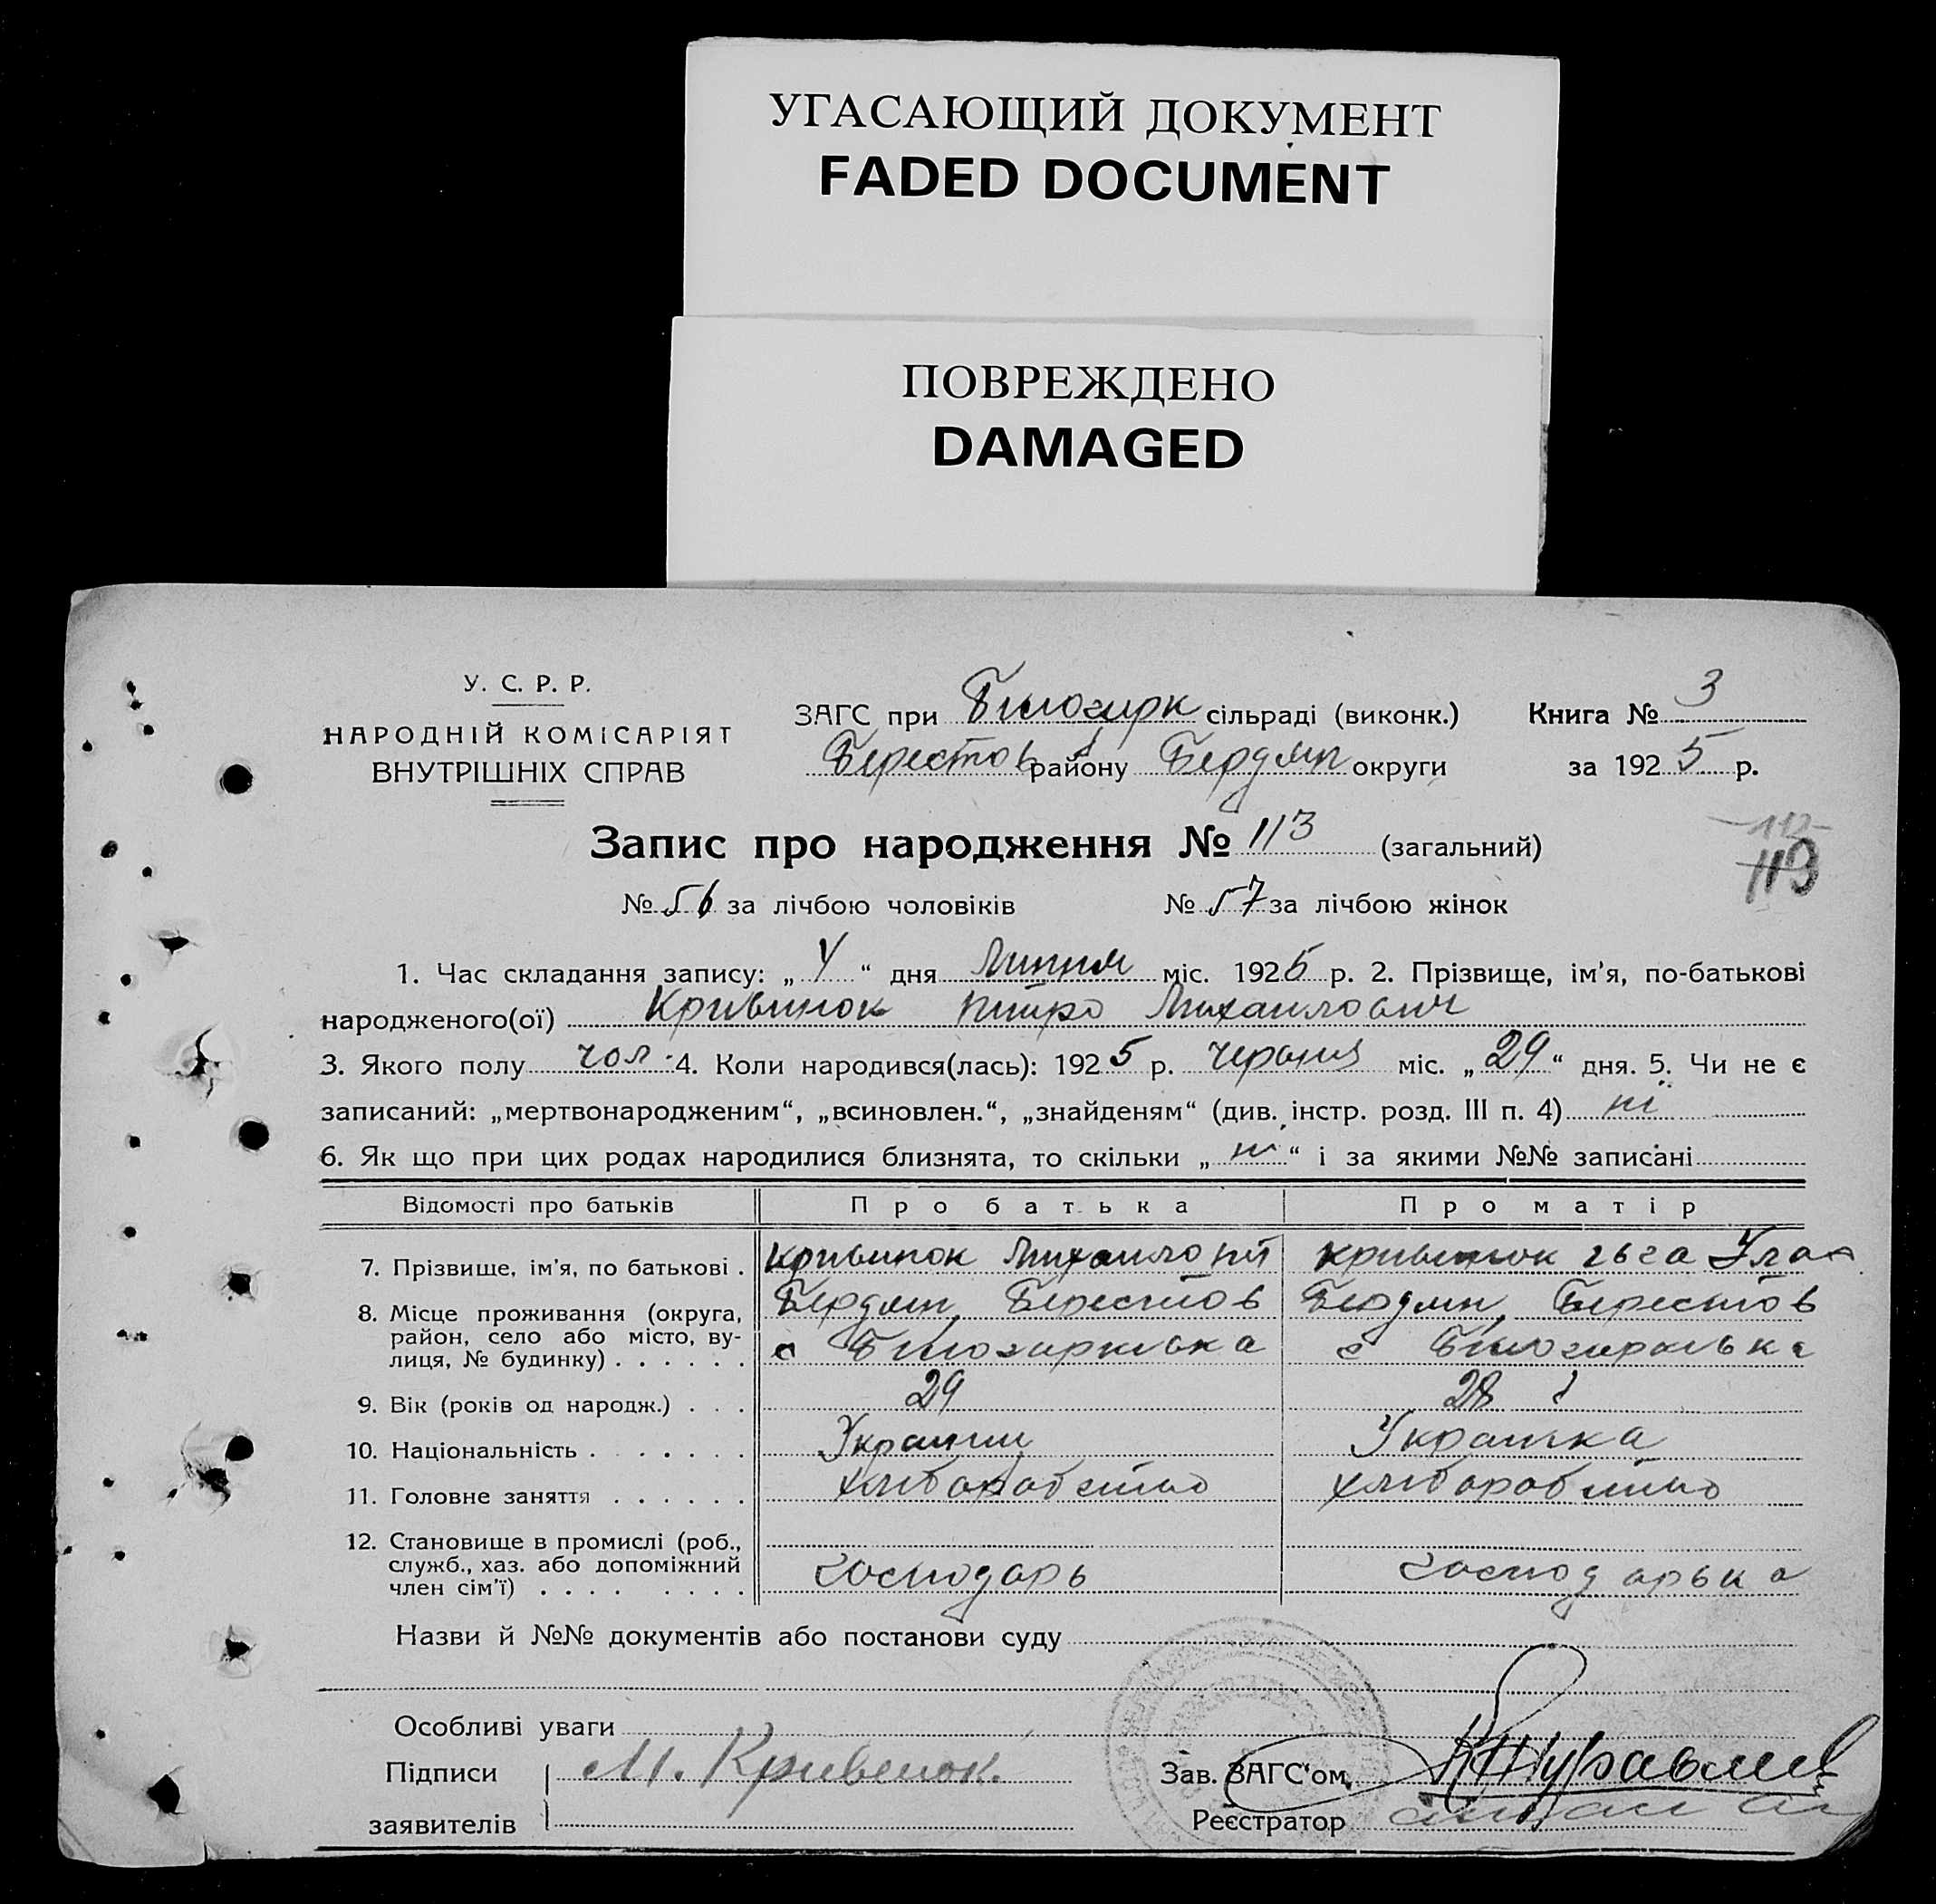 УГАСАЮЩИЙ ДОКУМЕНТ
FADED DOCUMENT
ПОВРЕЖДЕНО
DAMAGED
У. С. Р. Р.
НАРОДНІЙ КОМІСАРІЯТ
ВНУТРІШНІХ СПРАВ
ЗАГС при Билогирк сільраді (виконк.)
Берестов району Бердян округи
Книга № 3
за 1925 р.
Запис про народження № 113 (загальний)
113
№ 56 за лічбою чоловіків № 57 за лічбою жінок
1. Час складання запису: „ 4 “ дня Липня міс. 1925 р. 2. Прізвище, ім'я, по-батькові
народженого(ої) Кривинок Михаилович
3. Якого полу чол. 4. Коли народився(лась): 1925 р. Червня міс. „ 29 “ дня. 5. Чи не є
записаний: „мертвонародженим“, „всиновлен.“, „знайденям“ (див. інстр. розд. III п. 4) ні
6. Як що при цих родах народилися близнята, то скільки „ ні “ і за якими №№ записані
Відомості про батьків Про батька Про матір
7. Прізвище, ім'я, по батькові . Кривинок Михаило Кривинок
8. Місце проживання (округа, Бердян Берестов Бердян Берестов
район, село або місто, ву-
лиця, № будинку) . . . . . . с Билогиривка с Билогиривка
9. Вік (років од народж.) . . . 29 28
10. Національність . . . . . . Українка
11. Головне заняття . . . . . . хлиборобство хлиборобство
12. Становище в промислі (роб.,
служб., хаз. або допоміжний
член сім'ї) . . . . . . . . господарь господарька
Назви й №№ документів або постанови суду
Особливі уваги
Підписи М. Кривенок.
заявителів
Зав. ЗАГС'ом
Реєстратор